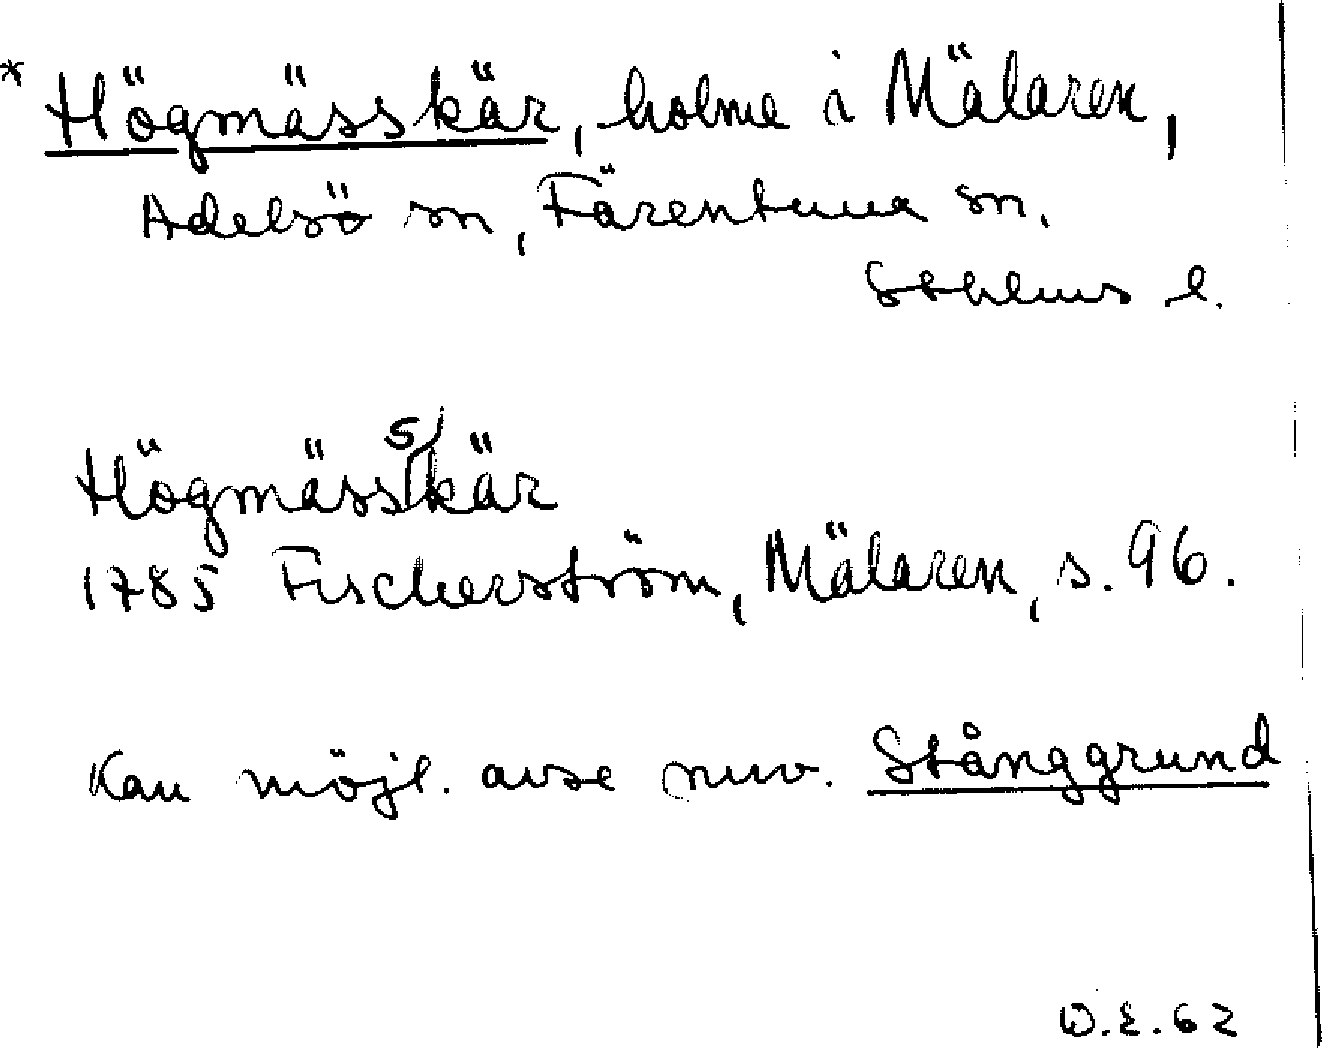 * Högmässkär, holme i Mälaren,
Adelsö sn, Färentuna sn.
Sthlms l.
Högmässskär
1785 Fischerström, Mälaren, s. 96.
Kan möjl. avse nuv. Stånggrund
O.E. 62